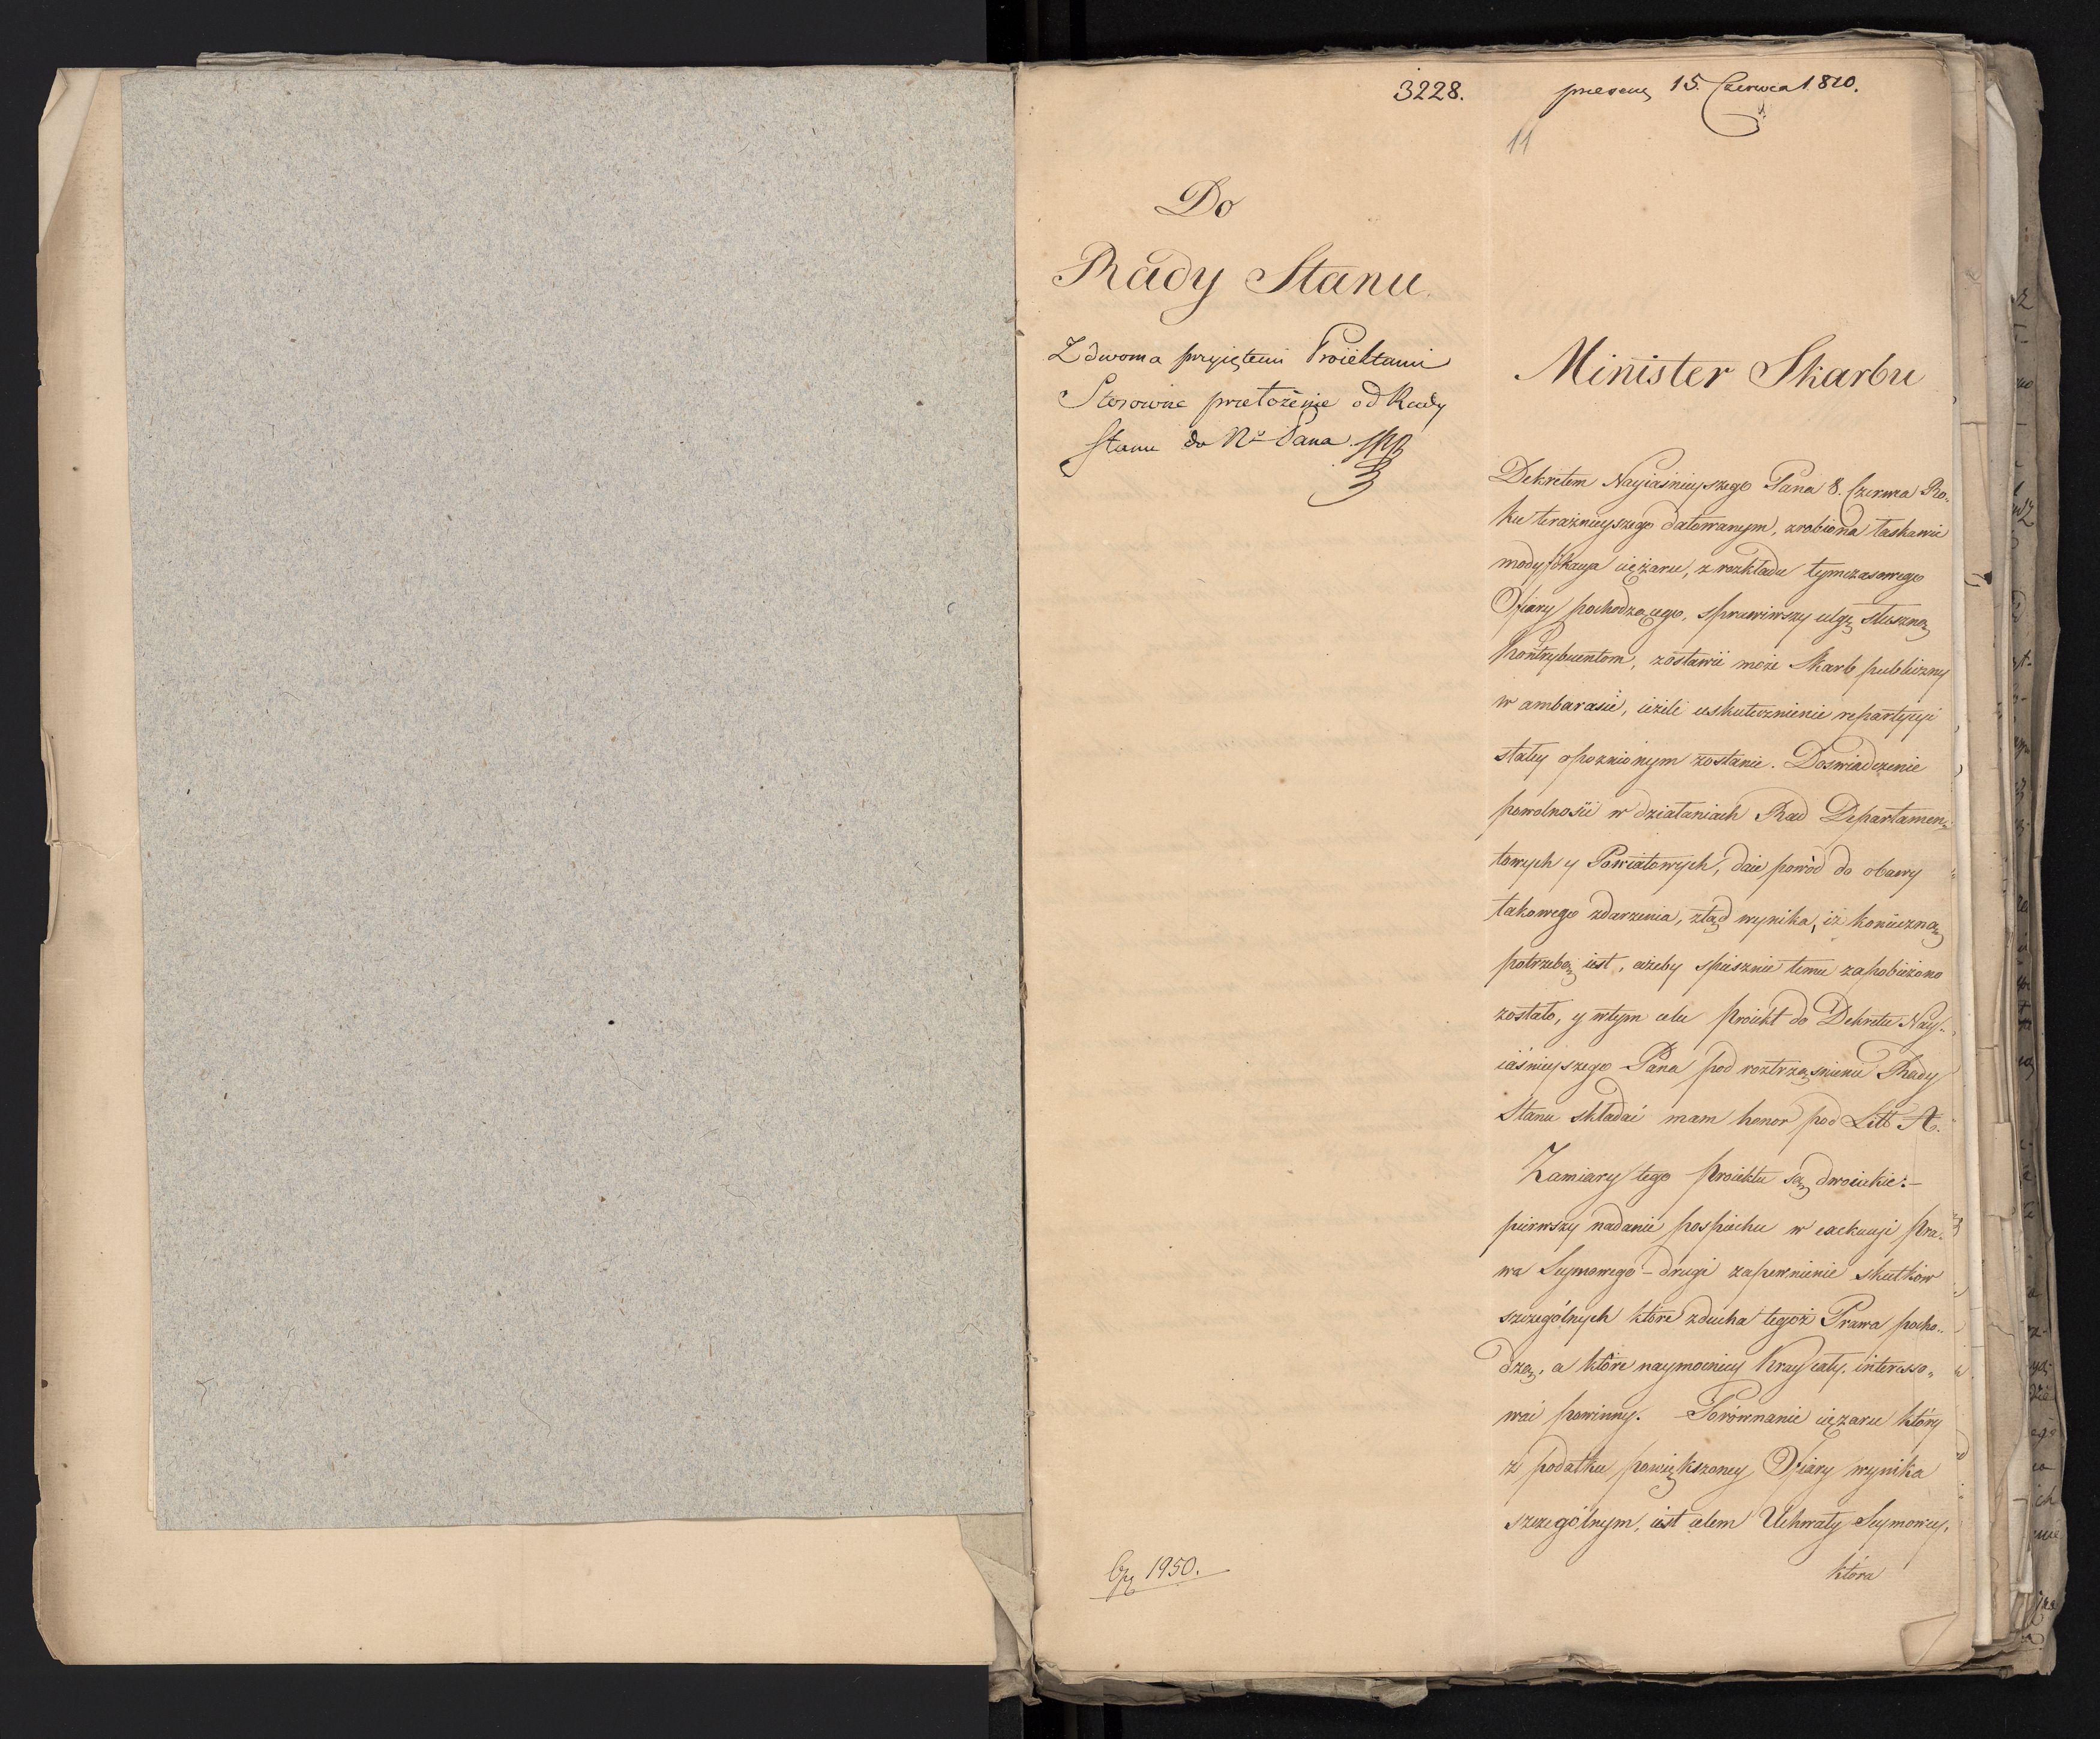 3228.
15. Czerwca 1810.
11
Do
Rady Stanu.
Z dwoma przyiętemi Proiektami
Stosowne przełożenie od Rady
Stanu do Nº Pana.
Minister Skarbu
Dekretem Nayiaśnieyszego Pana 8. Czerwca Ro„
ku teraźnieyszego datowanym, zrobiona łaskawie
modyfikacya ciężaru, z rozkładu tymczasowego
Ofiary pochodzącego, sprawiwszy ulgę słuszną
Kontrybuentom, zostawić może Skarb publiczny
w ambarasie, ieżeli uskutecznienie repartycyi
stałey opoznionym zostanie. Doświadczenie
powolności w działaniach Rad Departamen„
towych y Powiatowych, daie powód do obawy
takowego zdarzenia, ztąd wynika, iż konieczną
potrzebą iest, ażeby spiesznie temu zapobieżono
zostało, y wtym celu Proiekt do Dekretu Nay„
iaśnieyszego Pana pod roztrząśnienie Rady
Stanu składać mam honor pod Litt A.
Zamiary tego Proiektu są dwoiakie:–
pierwszy nadanie pospiechu w exekucyi Pra„
wa Seymowego – drugi zapewnienie skutków
szczególnych które z ducha tegoż Prawa pocho„
dzą, a które naymocniey Kray cały interesso„
wać powinny. Porównanie ciężaru który
z podatku powiększoney Ofiary wynika
szczególnym, iest celem Uchwały Seymowey,
która
1950.